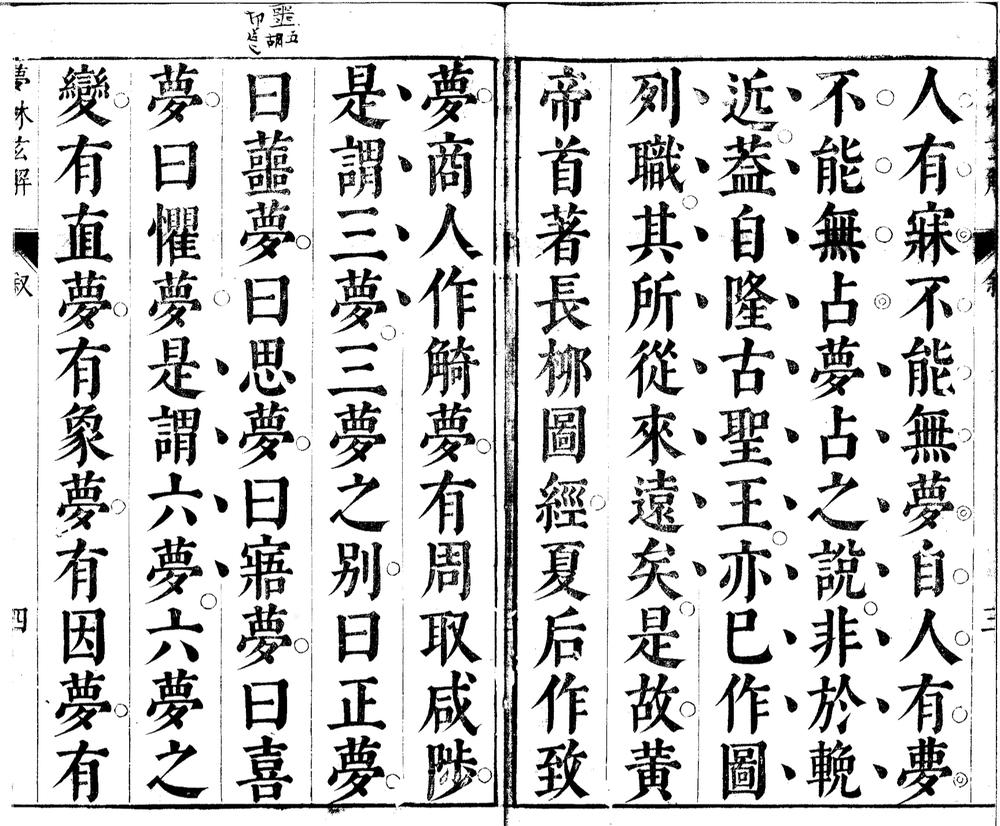 人有寐不能無夢自人有夢
不能無占夢占之說非於輓
近蓋自隆古聖王亦已作圖
列職其所從來遠矣是故黃
帝首著長柳圖經夏后作致
夢商人作觭夢有周取咸陟
是謂三夢三夢之別曰正夢
曰噩夢曰思夢曰寤夢曰喜
夢曰懼夢是謂六夢六夢之
變有直夢有象夢有因夢有
夢林玄解
叙
四
三